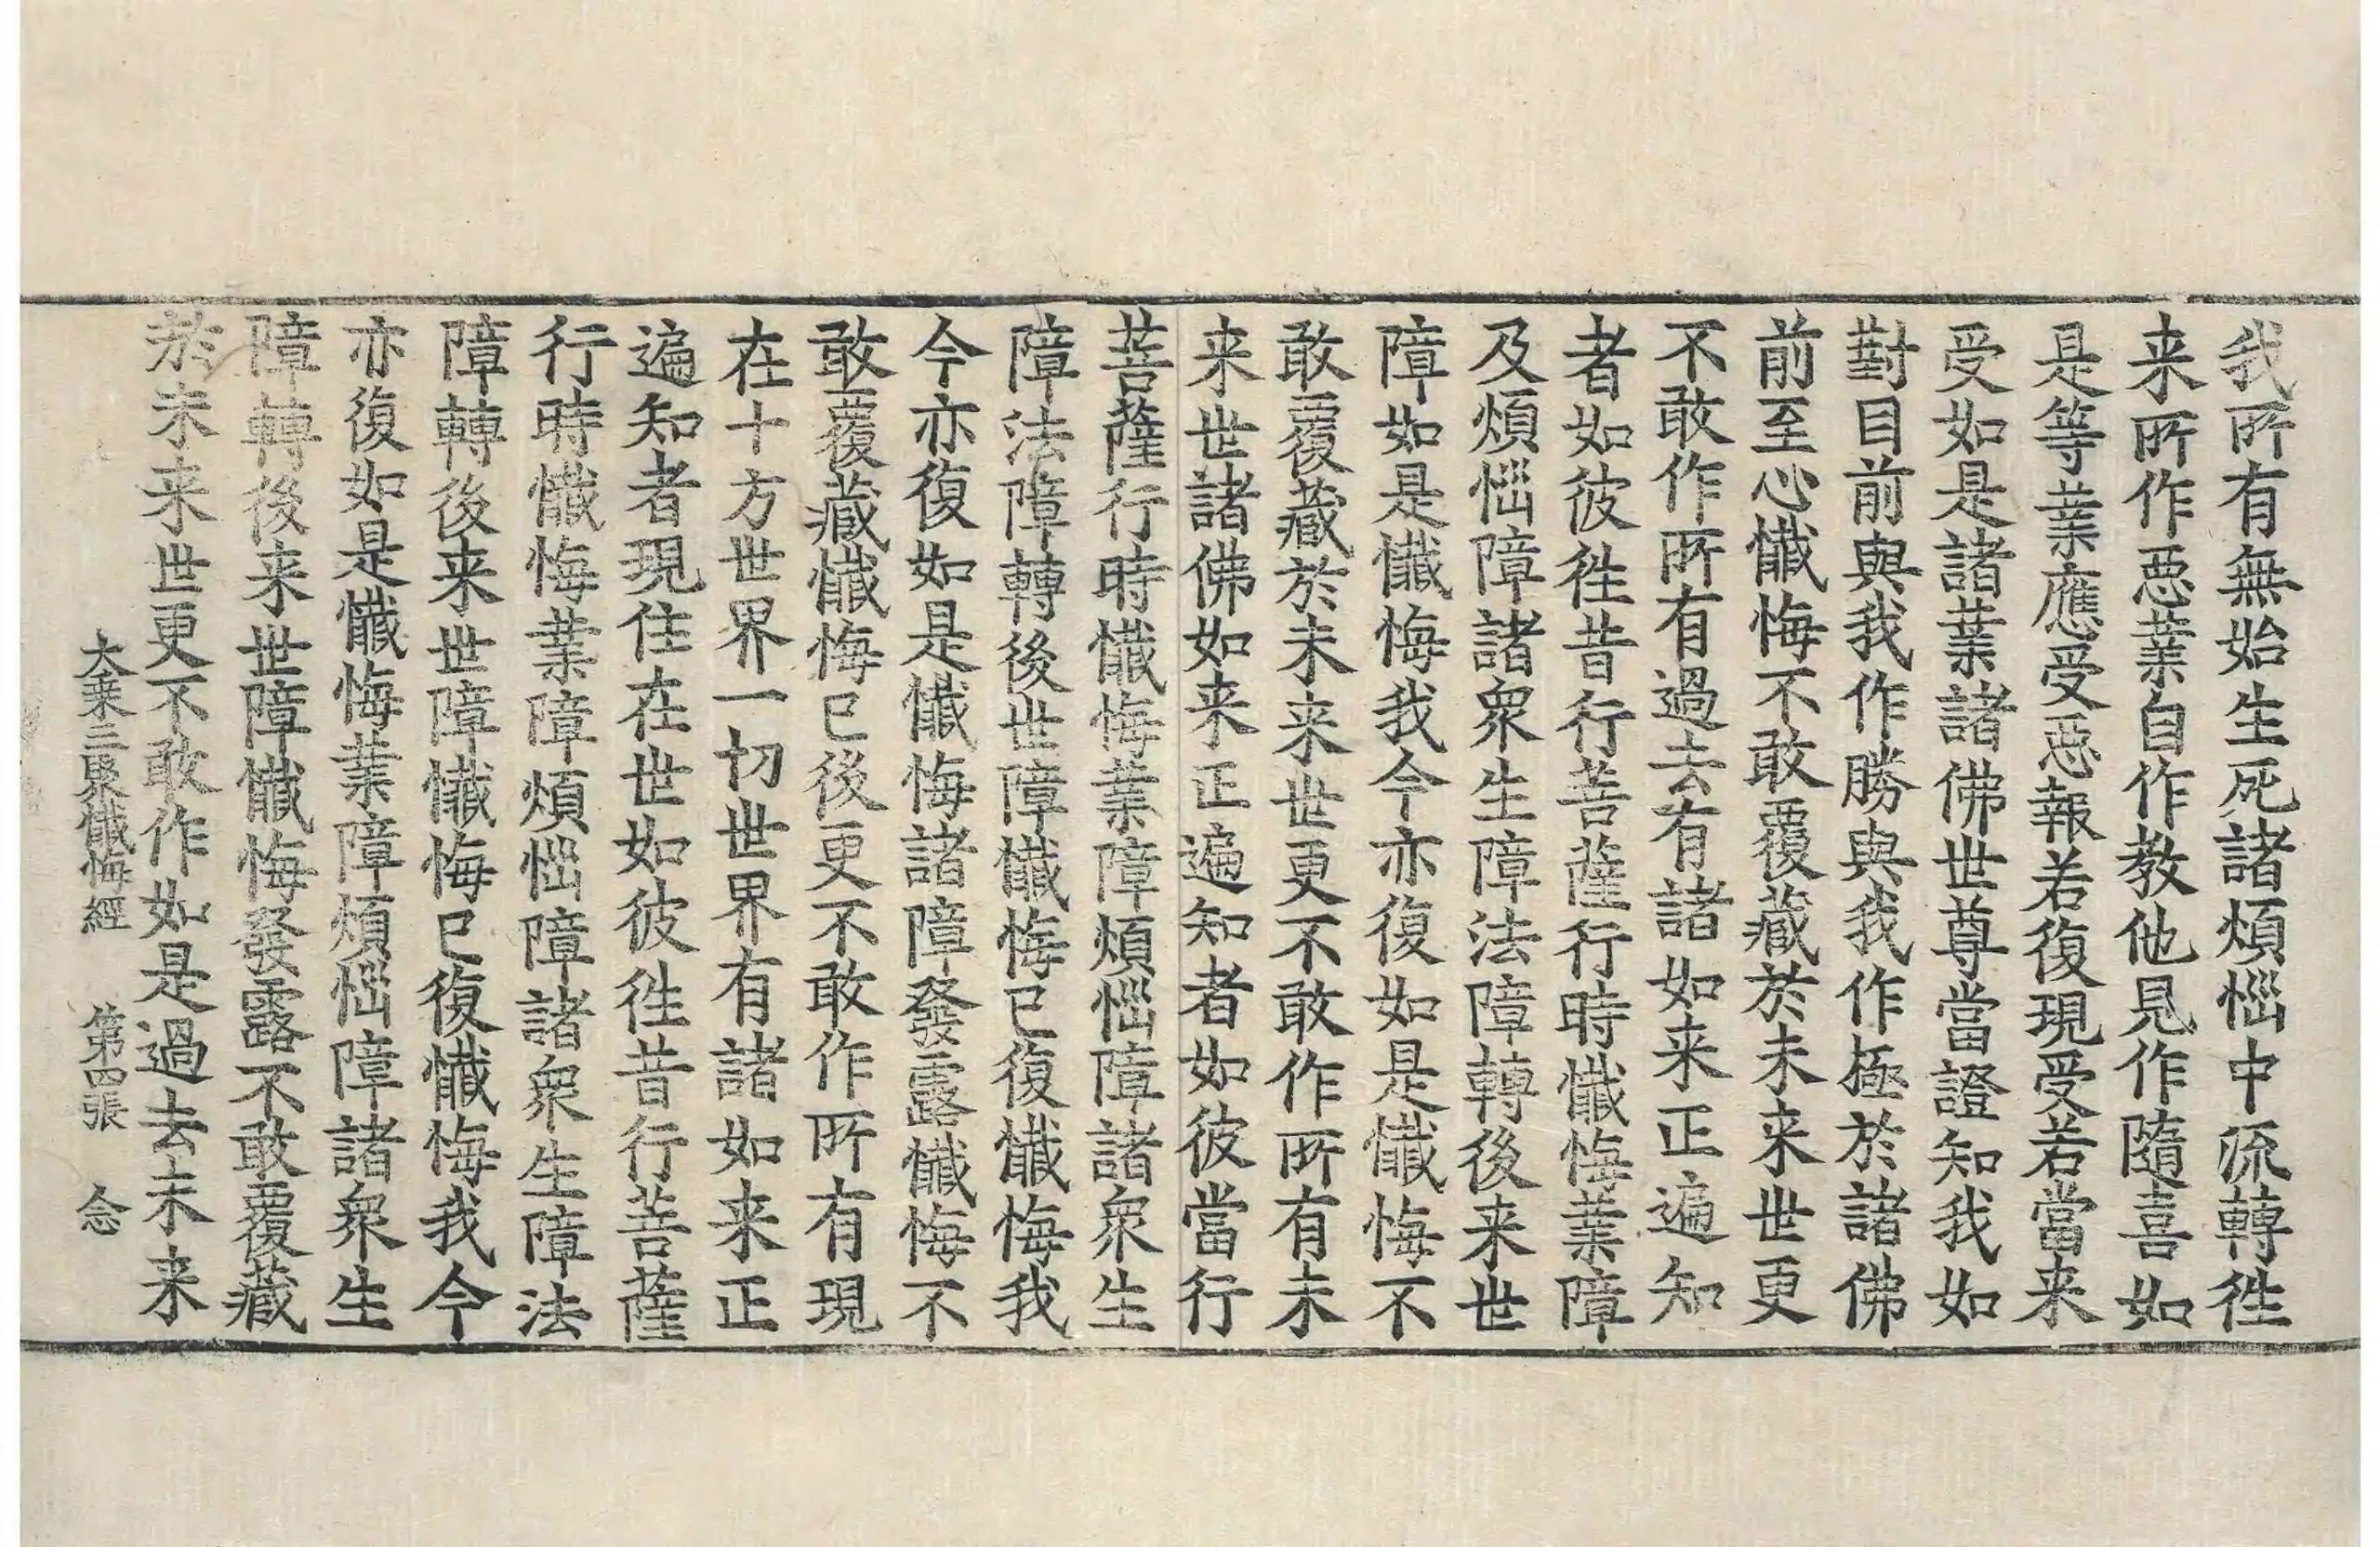 我所有無始生死諸煩惱中流轉徃
来所作惡業自作教他見作隨喜如
是等業應受惡報若復現受若當来
受如是諸業諸佛世尊當證知我如
對目前與我作勝與我作極於諸佛
前至心懺悔不敢覆藏於未来世更
不敢作所有過去有諸如来正遍知
者如彼徃昔行菩薩行時懺悔業障
及煩惱障諸衆生障法障轉後来世
障如是懺悔我今亦復如是懺悔不
敢覆藏於未来世更不敢作所有未
来世諸佛如来正遍知者如彼當行
菩薩行時懺悔業障煩惱障諸衆生
障法障轉後世障懺悔已復懺悔我
今亦復如是懺悔諸障發露懺悔不
敢覆藏懺悔已後更不敢作所有現
在十方世界一切世界有諸如来正
遍知者現住在世如彼徃昔行菩薩
行時懺悔業障煩惱障諸衆生障法
障轉後来世障懺悔已復懺悔我今
亦復如是懺悔業障煩惱障諸衆生
障轉後来世障懺悔發露不敢覆藏
於未来世更不敢作如是過去未来
大乗三聚懺悔經 第四張 念